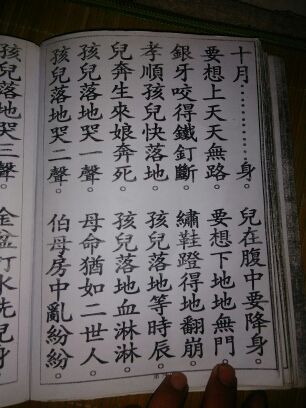 十月⋯⋯⋯⋯身　兒在腹中要降身。
要想上天天無路　要想下地地無門。
銀牙咬得鐵釘斷　繡鞋蹬得地翻崩。
孝順孩兒快落地　孩兒落地等時辰。
兒奔生來娘奔死　孩兒落地血淋淋。
孩兒落地哭一聲。　母命猶如二世人。
孩兒落地哭二聲。　伯母房中亂紛紛。
孩兒落地哭三聲。　全盆打水洗兒身